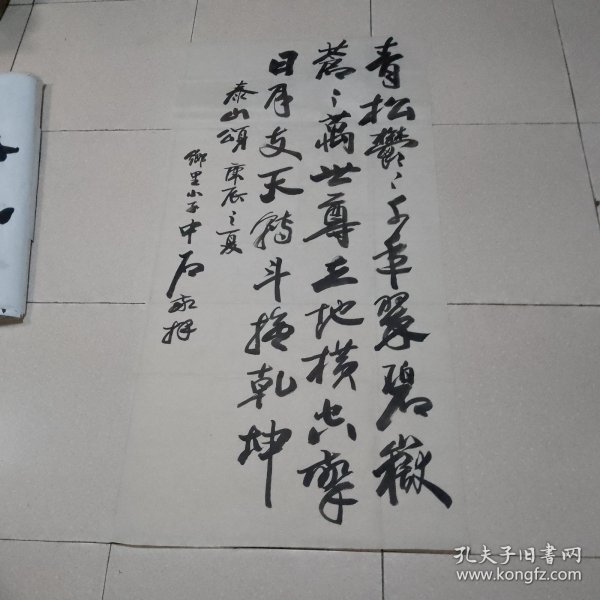 青松鬱〻千年翠碧嶽
蒼〻萬世尊立地橫空擎
日月支天轉斗掩乾坤
泰山頌 庚辰之夏
鄉里小子中石敬拜
孔夫子旧书网
www.kongfz.com